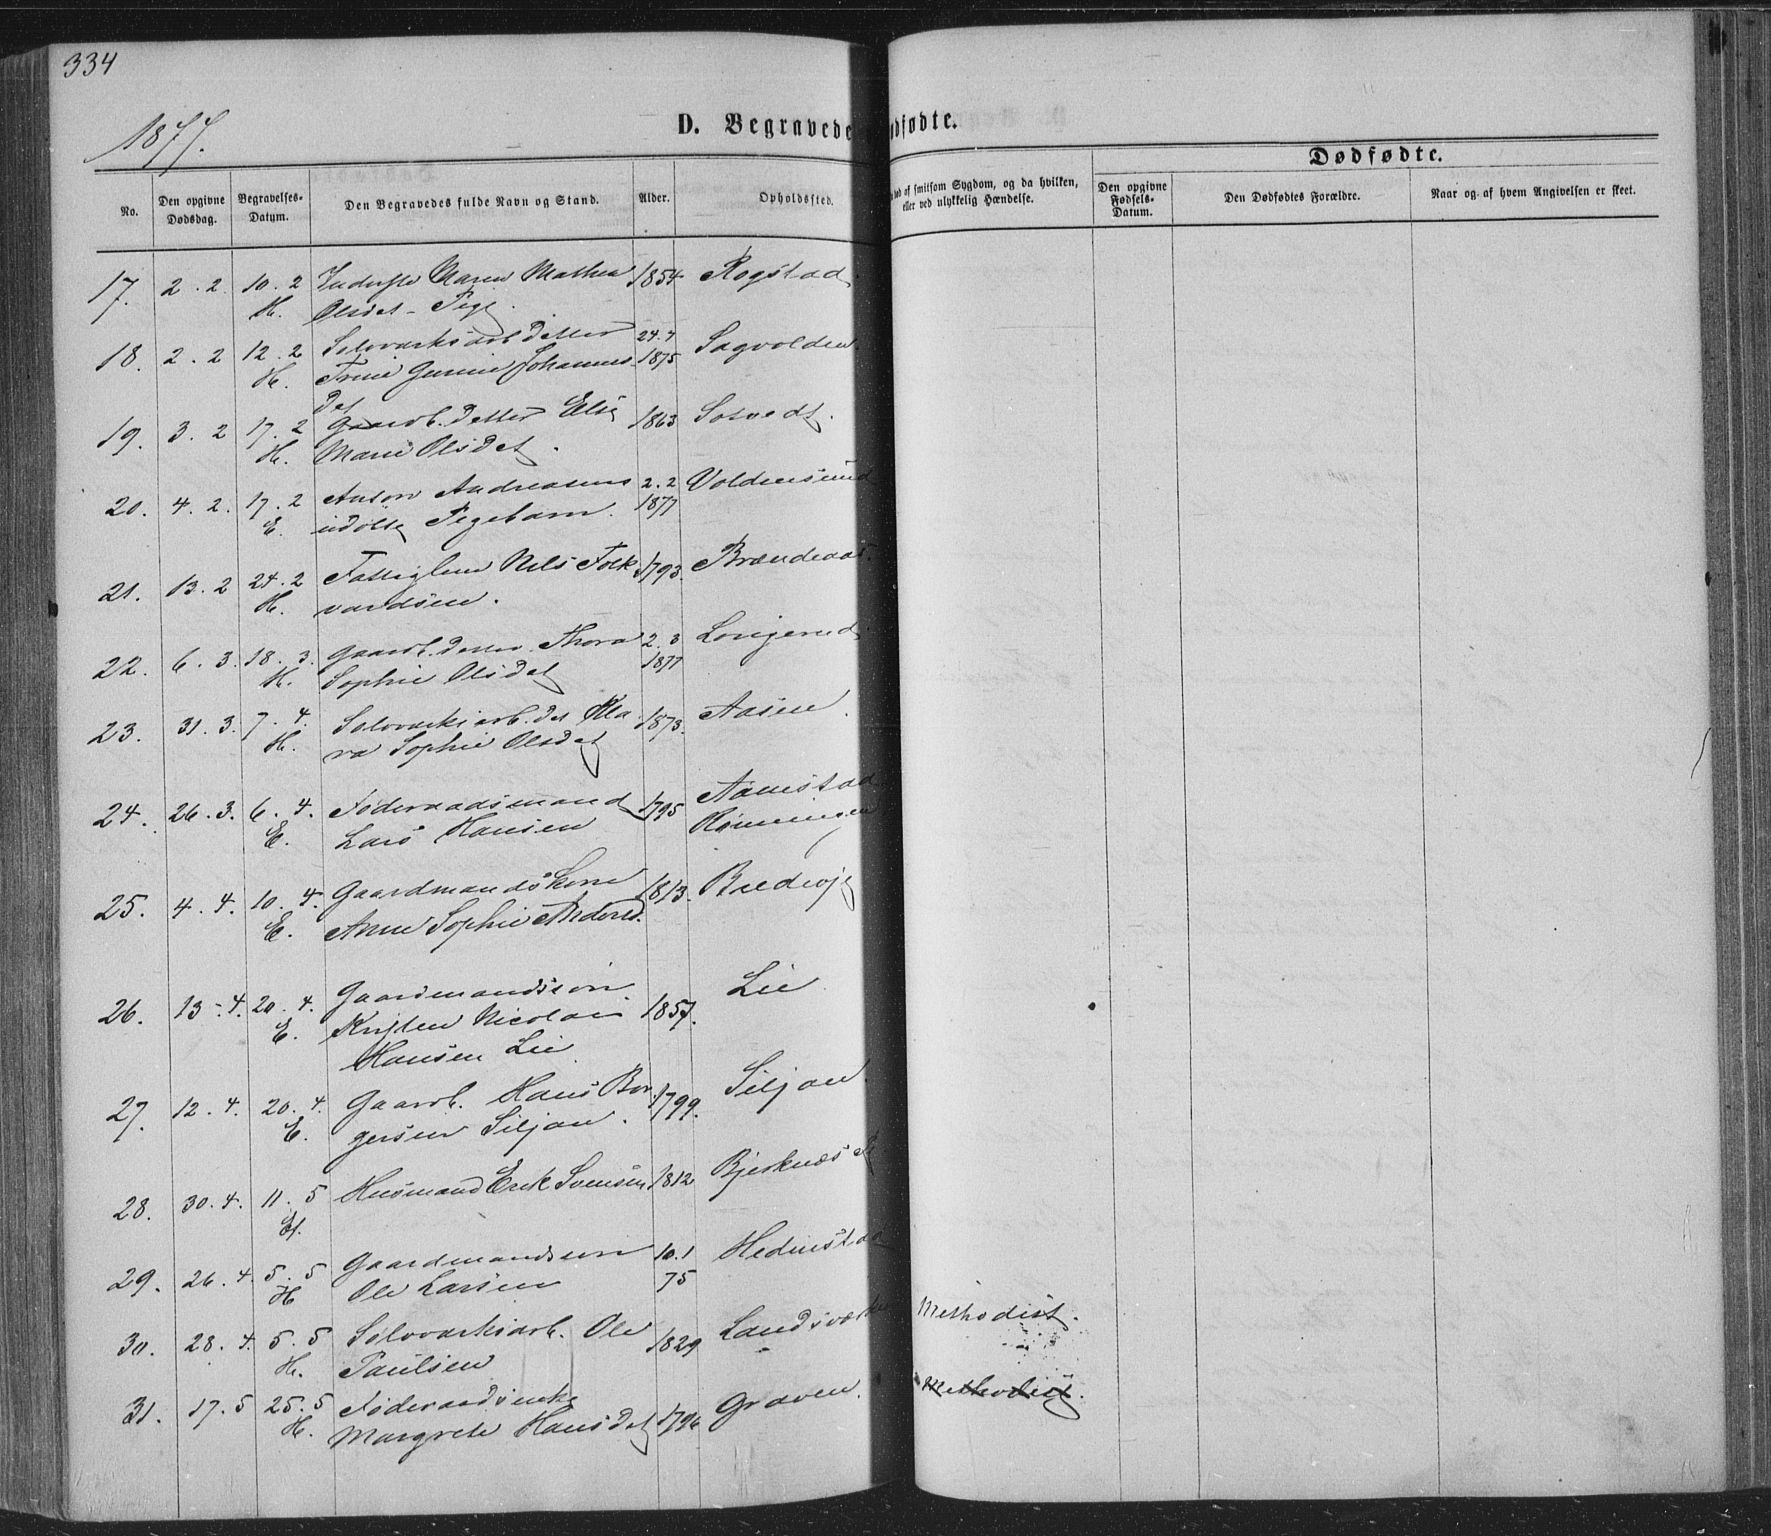 334
1877.
D. Begravede
dfødte.
Dødfødte.
No.
Den opgivne Dødsdag.
Begravelses-Datum.
Den Begravedes fulde Navn og Stand.
Alder.
Opholdssted.
af smitsom Sygdom, og da hvilken,
eller ved ulykkelig Hændelse.
Den opgivne Fødsels-Datum.
Den Dødfødtes Forældre.
Naar og af hvem Angivelsen er skeet.
17. 2. 2. 10. 2 Inderste Maren Mathea 1854 Rogstad
H. Olsdet - Pige
18. 2. 2 12. 2 Sølvværksarb. Detter 24. 7 Sagvolden
H. Trine Gurine Johannes- 1875
det
19. 3. 2 17. 2 Gaardb. Detter Else 1863 Sotvedt.
H. Marie Olsdet.
20. 4. 2. 17. 2 Anton Andreasens 2. 2 Voldensund
E. udøbte Pigebarn. 1877
21. 13. 2 24. 2 Fattiglem Nils Folk- 1793. Brændeaas.
H. vardsen.
22. 6. 3. 18. 3. Gaardb. Detter Thora 2. 3 Longerud
H. Sophie Olsdet 1877
23. 31. 3. 7. 4. Sølvværksarb. det Kla- 1873. Aasen.
H. ra Sophie Olsdet
24. 26. 3. 6. 4. Føderaadsmand 1795 Aamstad
E. Lars Hansen Rønningen
25. 4. 4. 10. 4. Gaardmandskone 1813. Bredvje
E. Anne Sophie Andersd.
26. 13. 4. 20. 4. Gaardmandssøn 1857. Lie
E. Kristen Nicolai
Hansen Lie
27. 12. 4. 20. 4. Gaardb. Hans Bor- 1799. Siljan.
E. gersen Siljan.
28. 30. 4. 11. 5 Husmand Erik Svensen 1812 Bjerknæs
Ef.
29. 26. 4. 5. 5 Gaardmandssøn 10. 1 Hedenstad
H Ole Larsen 75
30. 28. 4. 5. 5 Sølvværksarb. Ole 1829 Landsværk Methodist.
H. Paulsen
31. 17. 5 25. 5 Føderaadsenke 1796 Graven. Methodist.
H. Margrete Hansdet